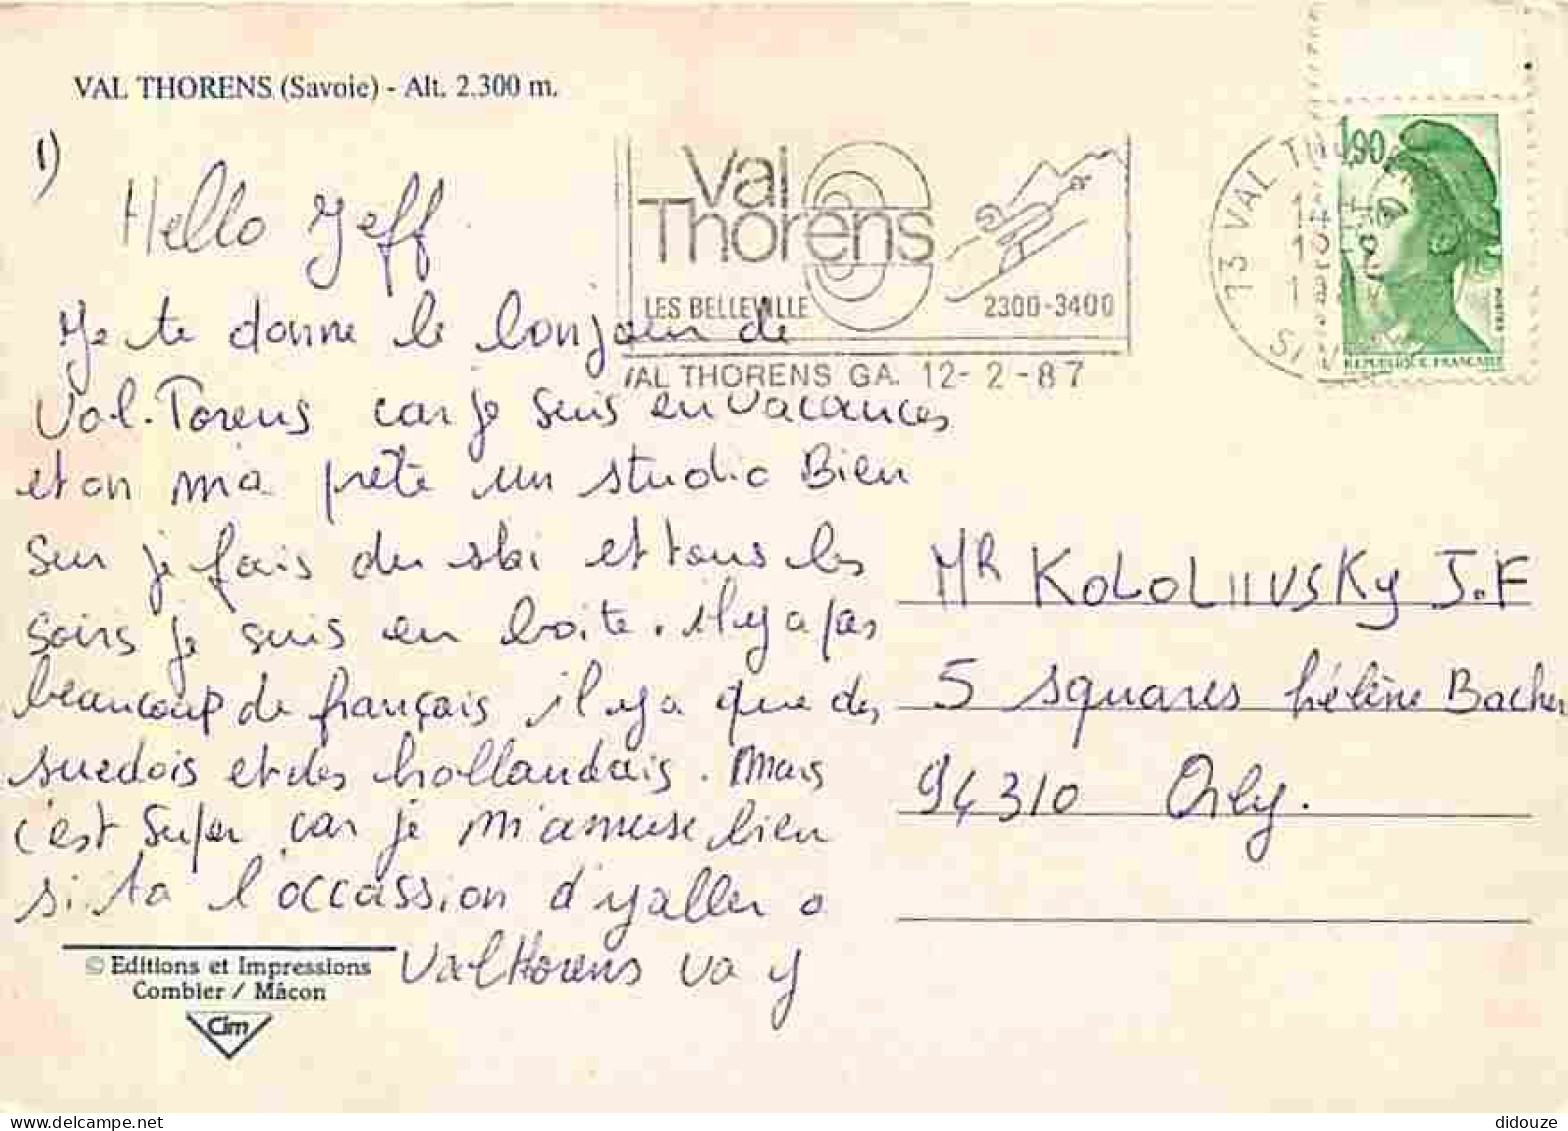 VAL THORENS (Savoie) - Alt. 2.300 m.
1)
Hello Jeff
Val
Thorens
LES BELLEVILLE
2300-3400
VAL THORENS GA. 12-2-87
73 VAL THO
1,90
REPUBLIQUE FRANÇAISE
Je te donne le bonjour de
Val.Torens car je suis en vacances
et on ma prêté un studio Bien
sur je fais du ski et tous les
soirs je suis en boite. il y a pas
beaucoup de français il y a que des
suedois et des hollandais. Mais
c'est Super car je m'amuse bien
si ta l'occassion d'y aller a
Valthorens va y
Mr KOLOLIIVSKY J.F
5 squares hélène Bacher
94310 Orly.
© Editions et Impressions
Combier / Mâcon
Cim
didouze